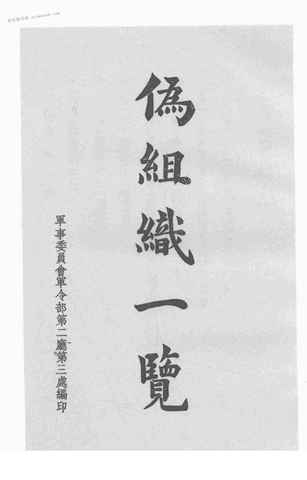 偽組織一覽
軍事委員會軍令部第二廳第三處編印